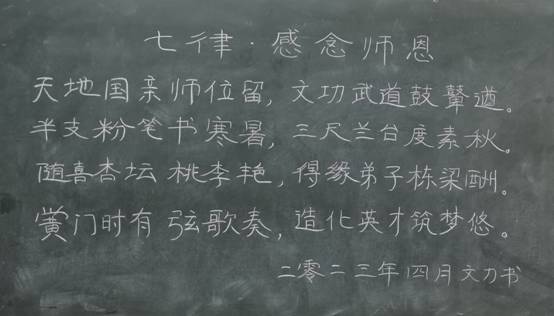 七律·感念师恩
天地国亲师位留，文功武道鼓鼙遒。
半支粉笔书寒暑，三尺兰台度素秋。
随喜杏坛桃李艳，得缘弟子栋梁酬。
黉门时有弦歌奏，造化英才筑梦悠。
二零二三年四月文力书